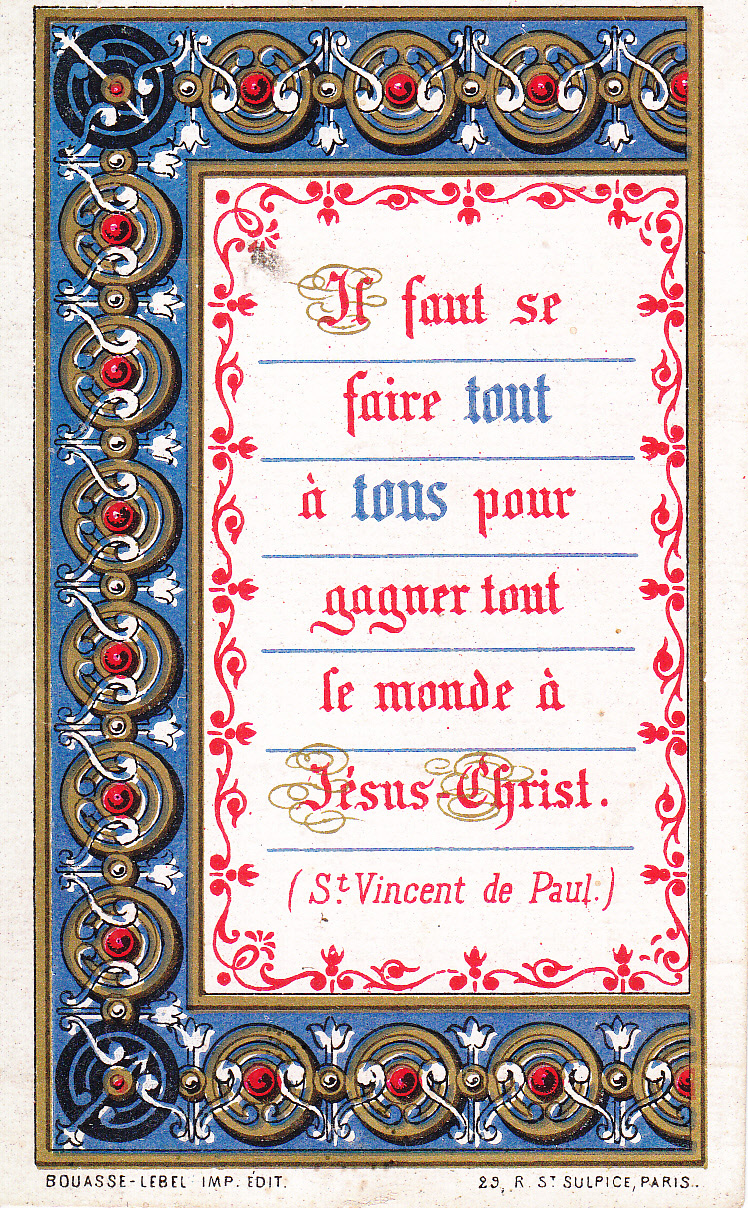 Il faut se
faire tout
à tous pour
gagner tout
le monde à
Jésus-Christ.
(St Vincent de Paul.)
BOUASSE-LEBEL IMP. ÉDIT.
29, R. ST SULPICE, PARIS.